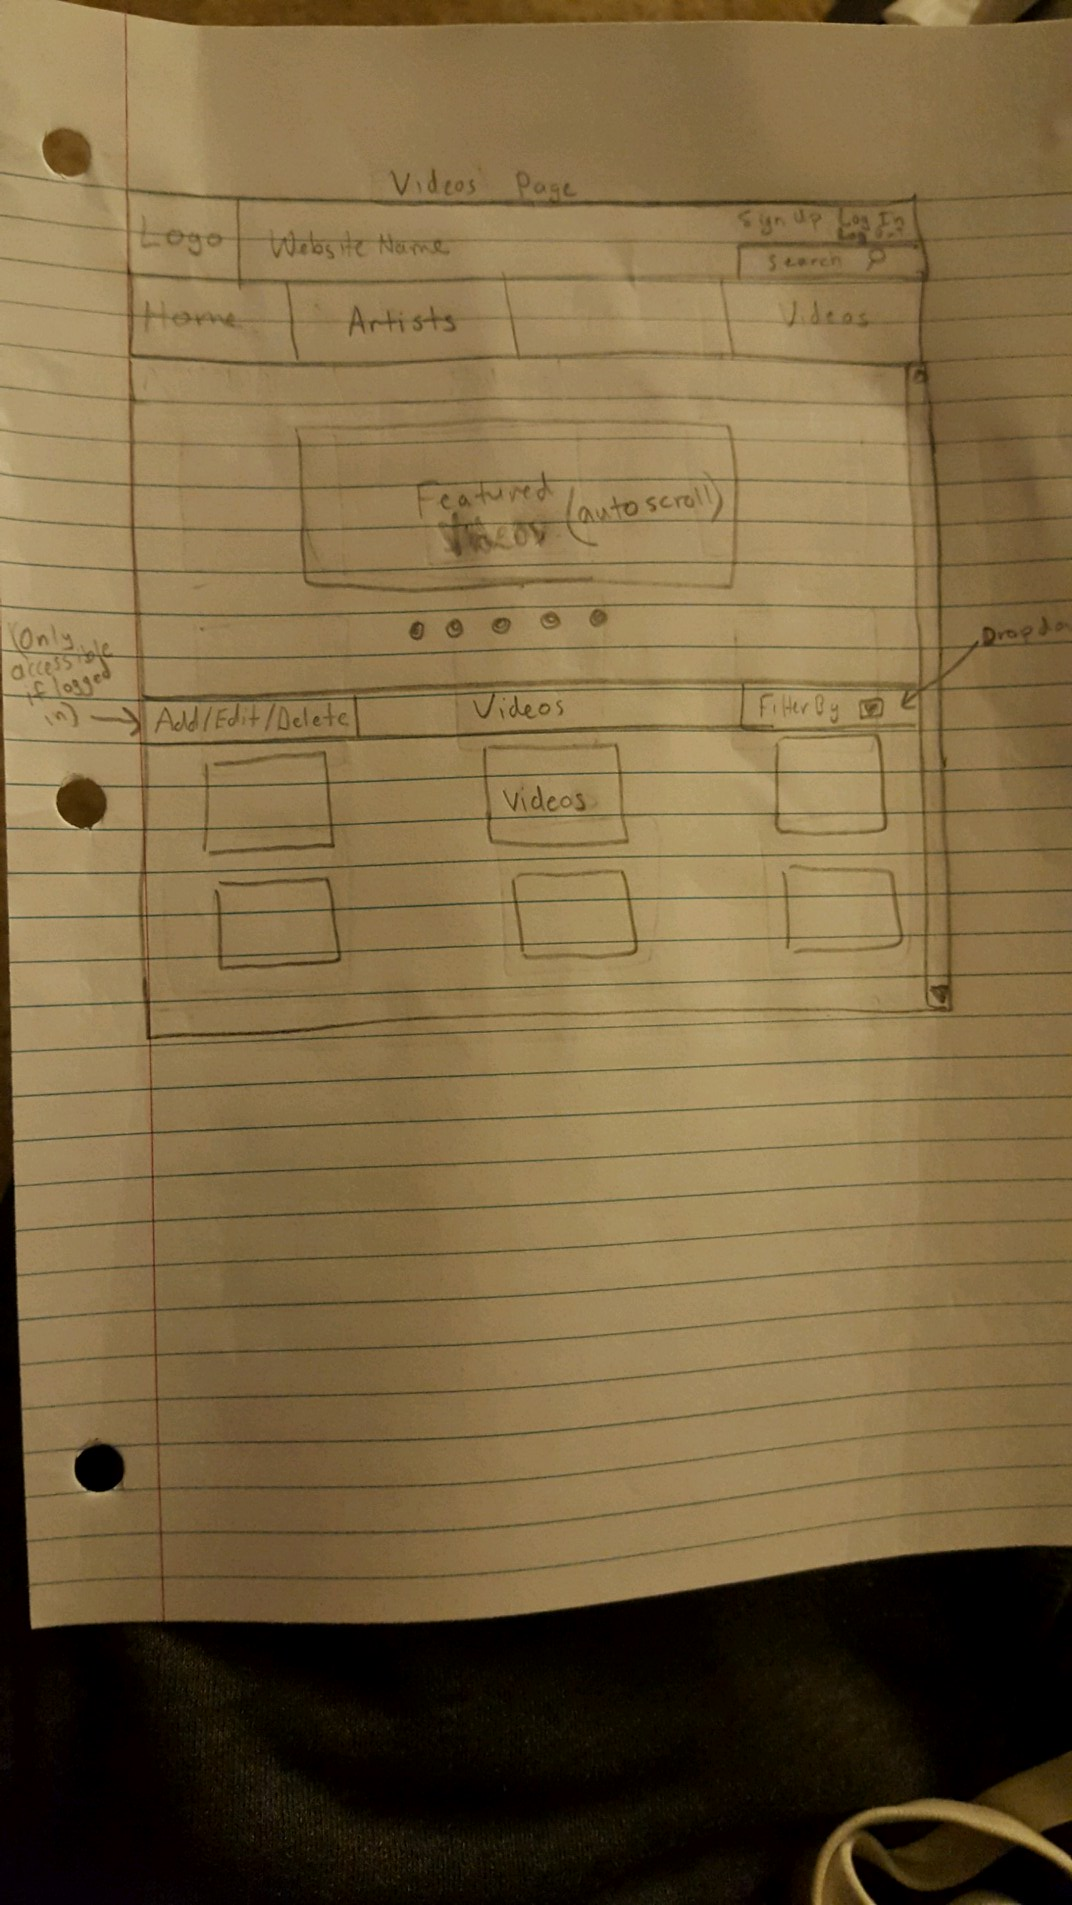 Videos Page
Logo
Website Name
Sign Up Log In
Log Out
Search
Home
Artists
Videos
Featured
Videos (auto scroll)
(Only
accessible
if logged
in)
Dropdo
Add/Edit/Delete
Videos
Filter By
Videos